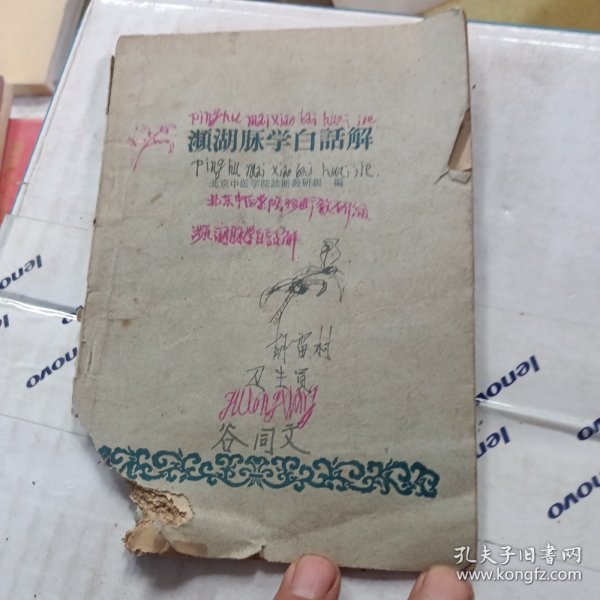 pinghu mai xiao bai huai jie
瀕湖脉学白話解
pinghu mai xiao bai huai jie.
北京中医学院診断教研組 編
北京中医学院珍断教研组
濒湖脉学白話解
胡留村
卫生員
谷同文
lenovo
lenovo
lenovo
lenovo
孔夫子旧书网
www.kongfz.com